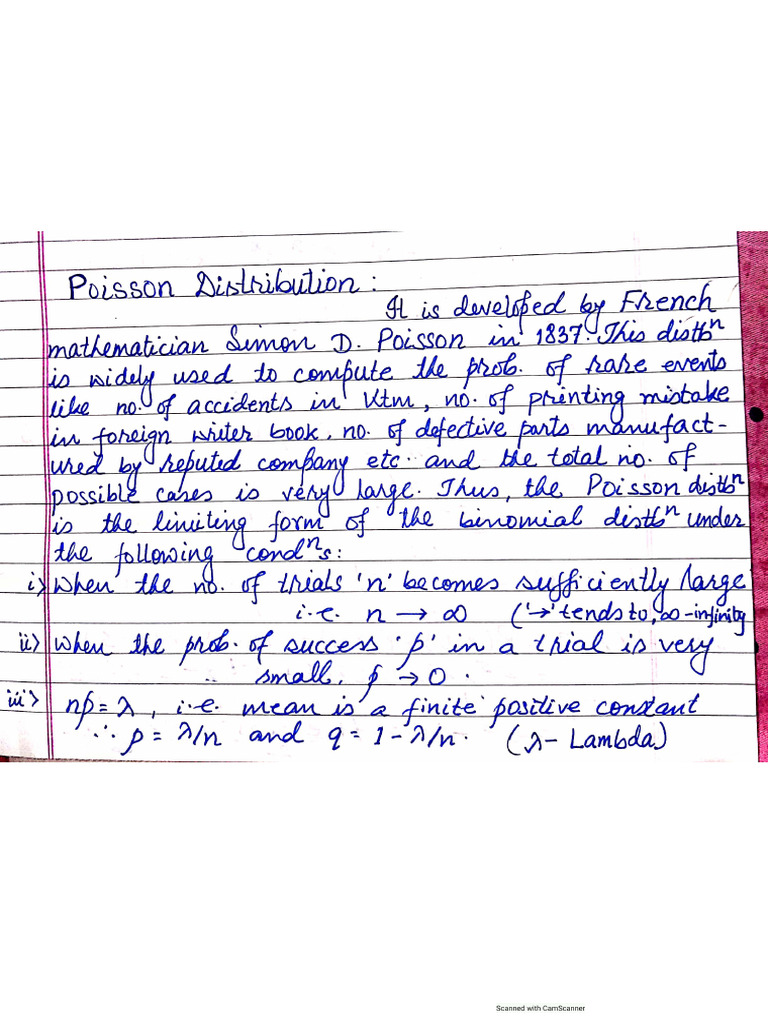 Poisson Distribution :
It is developed by French
mathematician Simon D. Poisson in 1837. This distbⁿ
is widely used to compute the prob. of rare events
like no. of accidents in Ktm, no. of printing mistake
in foreign writer book, no. of defective parts manufact-
ured by reputed company etc. and the total no. of
possible cases is very large. Thus, the Poisson distbⁿ
is the limiting form of the binomial distbⁿ under
the following condⁿs:
i) When the no. of trials 'n' becomes sufficiently large
i.e. n → ∞ ('→' tends to, ∞ - infinity
ii) When the prob. of success 'p' in a trial is very
small, p → 0.
iii) np = λ, i.e. mean is a finite positive constant
∴ p = λ/n and q = 1 - λ/n. (λ - Lambda)
Scanned with CamScanner